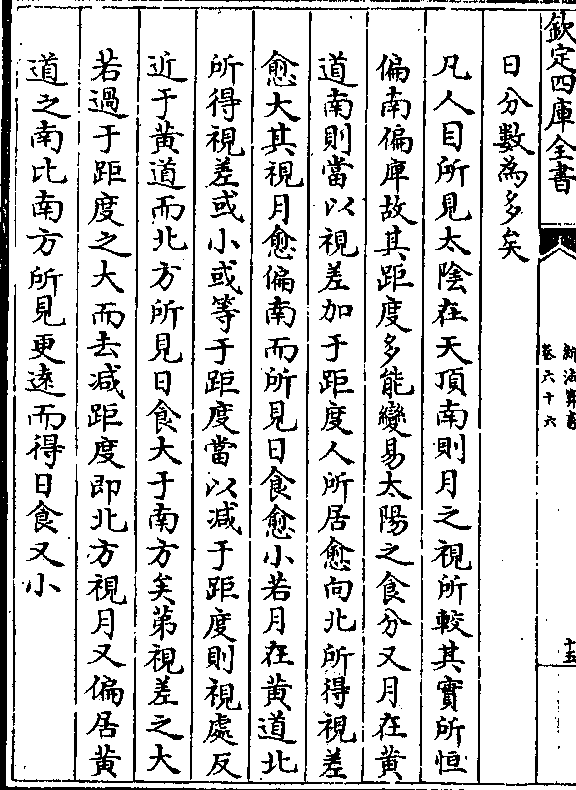 欽定四庫全書
新法算書
卷六十六
十五
日分數為多矣
凡人目所見太陰在天頂南則月之視所較其實所恒
偏南偏庳故其距度多能變易太陽之食分又月在黃
道南則當以視差加于距度人所居愈向北所得視差
愈大其視月愈偏南而所見日食愈小若月在黃道北
所得視差或小或等于距度當以減于距度則視處反
近于黃道而北方所見日食大于南方矣苐視差之大
若過于距度之大而去減距度即北方視月又偏居黃
道之南比南方所見更逺而得日食又小